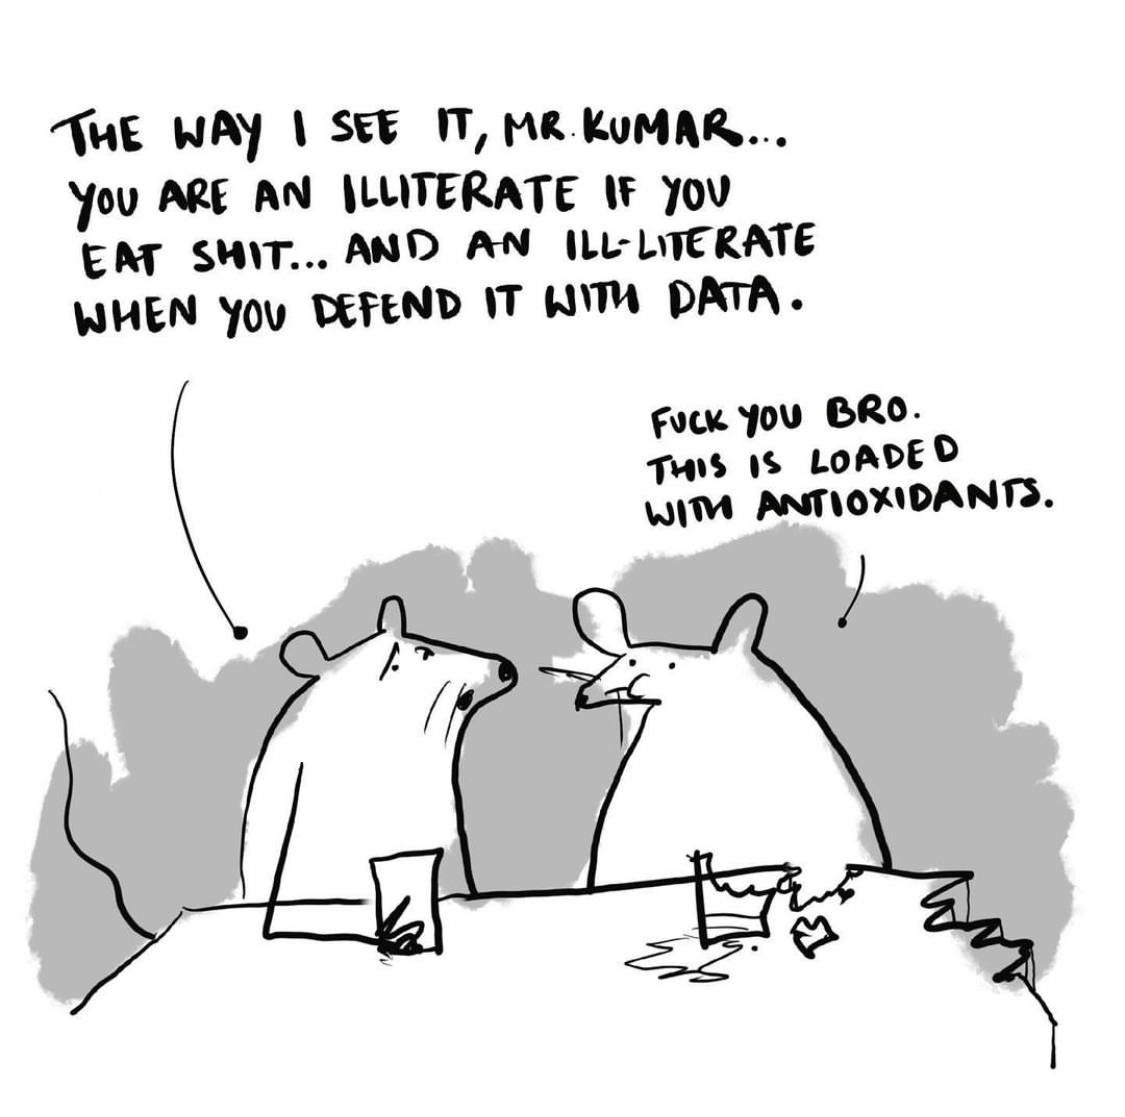 THE WAY I SEE IT, MR. KUMAR...
YOU ARE AN ILLITERATE IF YOU
EAT SHIT... AND AN ILL-LITERATE
WHEN YOU DEFEND IT WITH DATA.
FUCK YOU BRO.
THIS IS LOADED
WITH ANTIOXIDANTS.